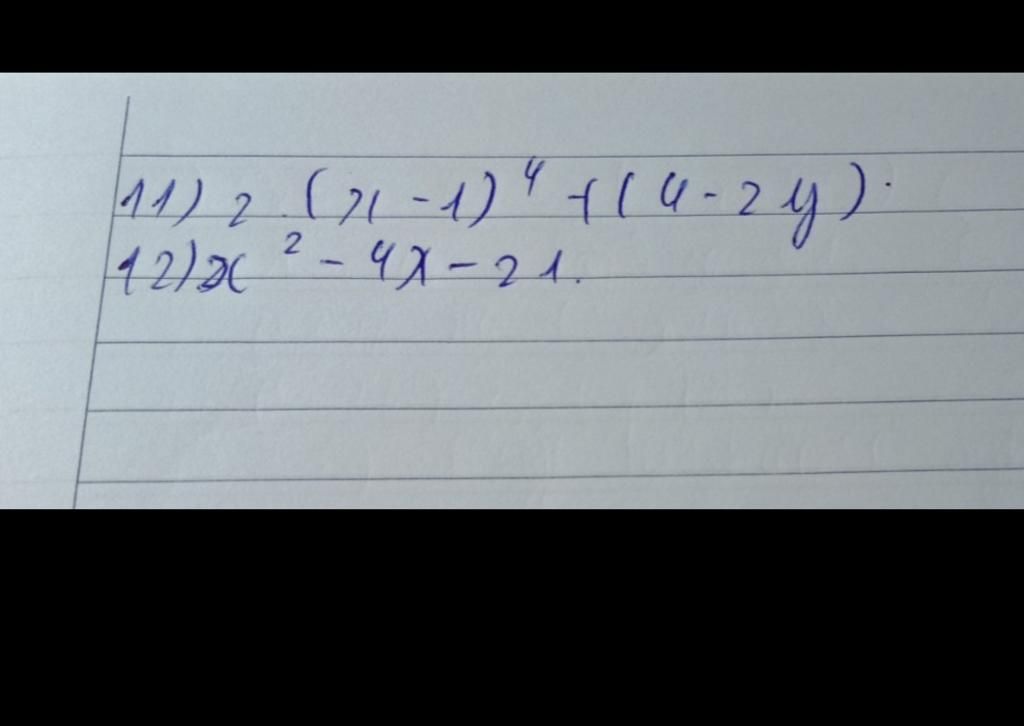 11) 2 (x - 1)⁴ + (4 - 2y).
12) x² - 4x - 21.